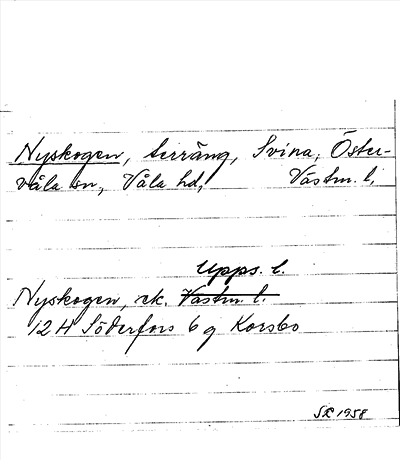 Nyskogen, terräng, Svina, Öster-
våla sn, Våla hd, Västm. l,
Upps. l.
Nyskogen, ek. Västm. l.
12 H Söderfors 6 g Korsbo
1958